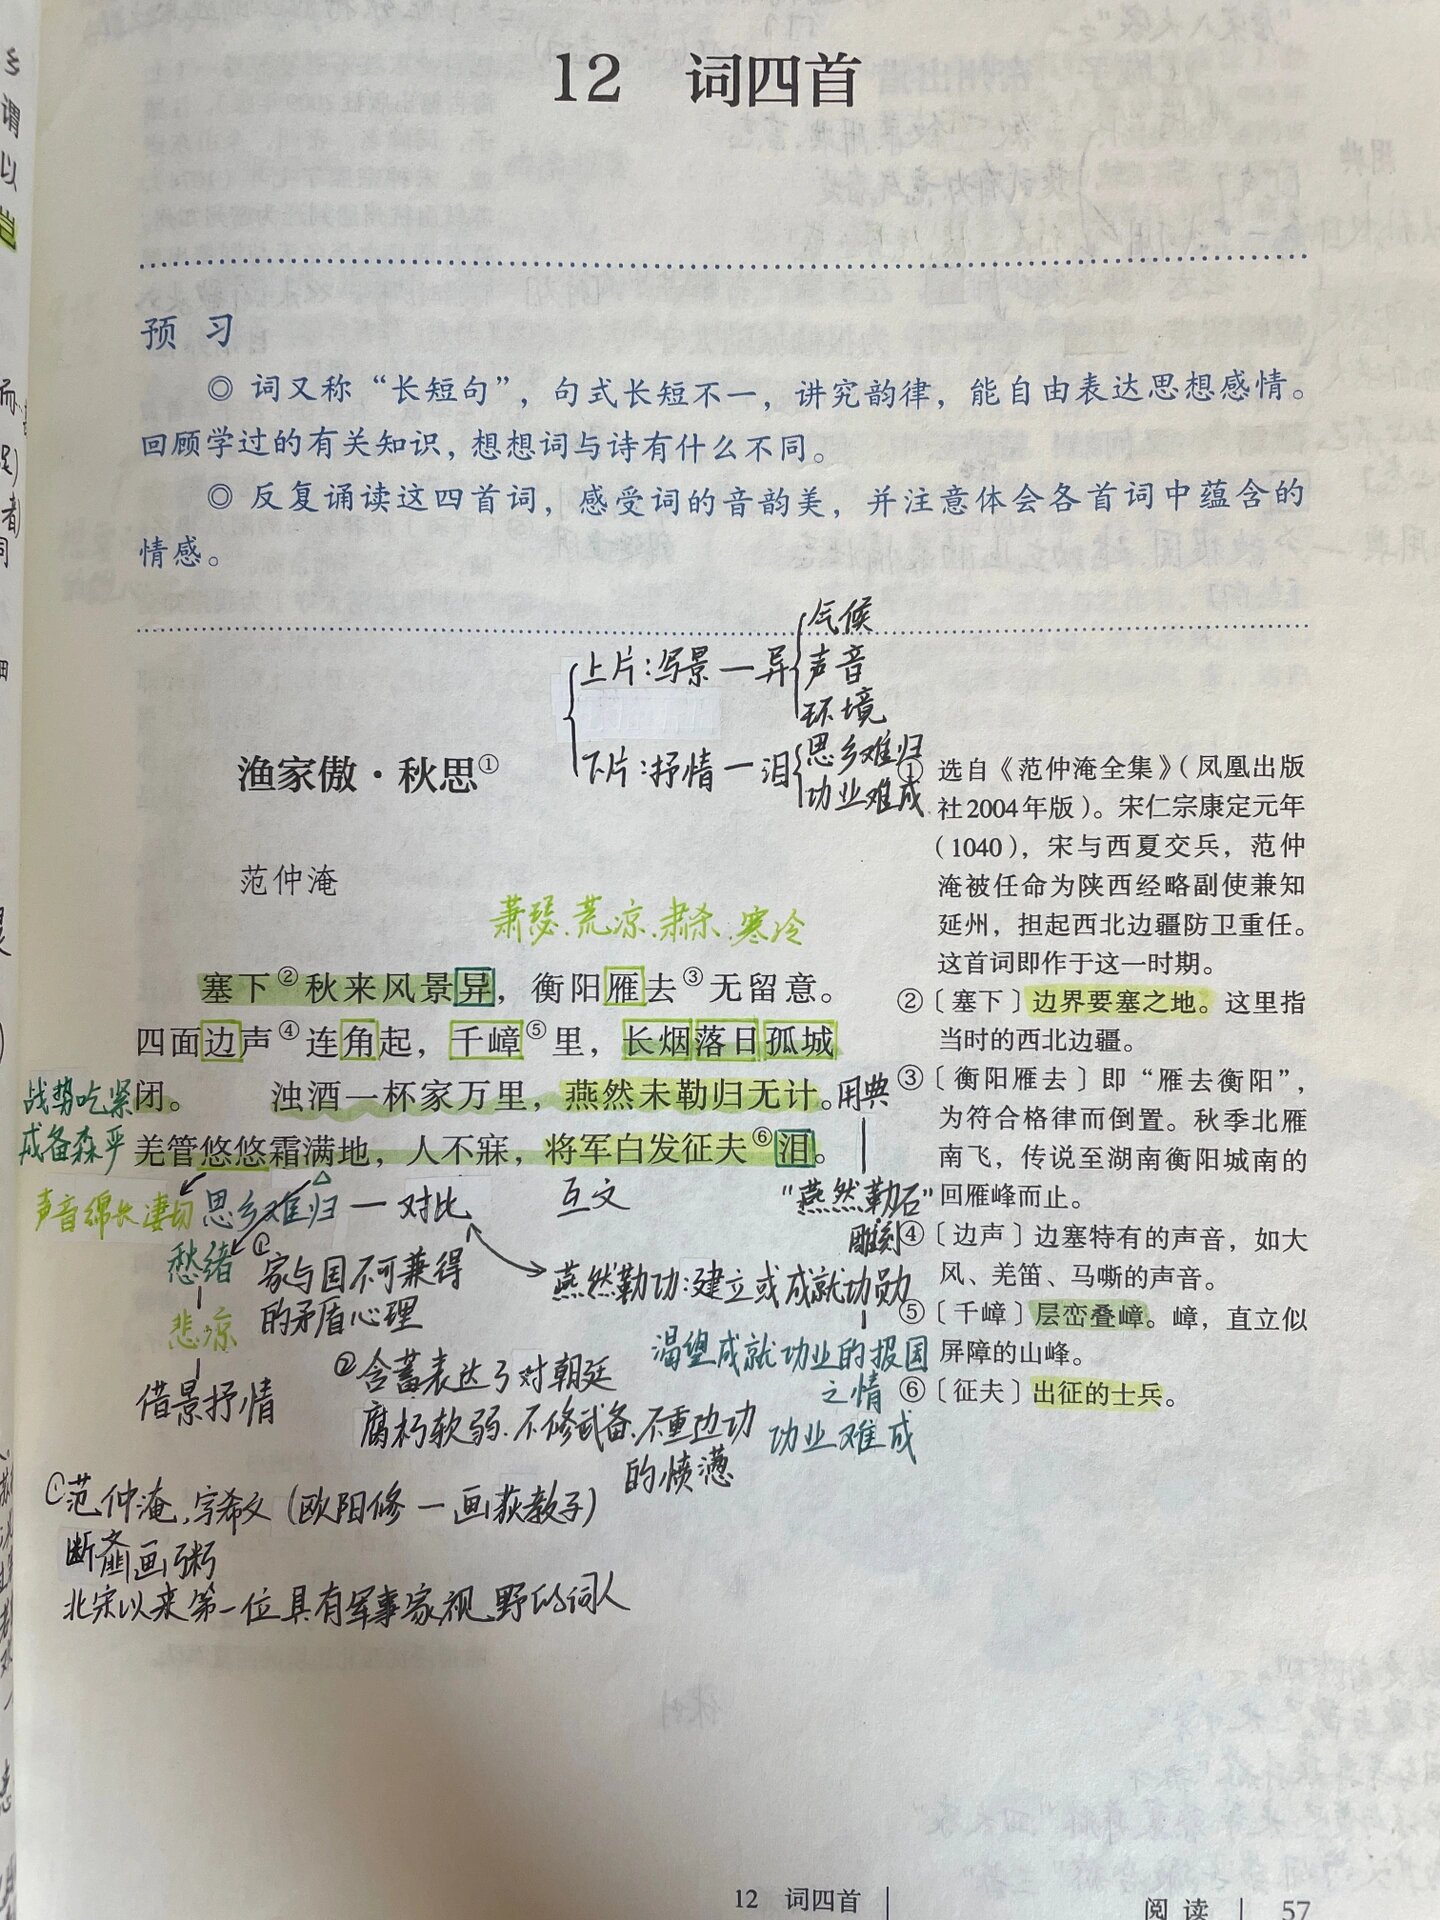 12 词四首
预 习
◎ 词又称“长短句”，句式长短不一，讲究韵律，能自由表达思想感情。
回顾学过的有关知识，想想词与诗有什么不同。
◎ 反复诵读这四首词，感受词的音韵美，并注意体会各首词中蕴含的
情感。
气候
上片：写景一异
声音
环境
下片：抒情一泪
思乡难归
功业难成
渔家傲·秋思①
范仲淹
萧瑟.荒凉.肃杀.寒冷
塞下②秋来风景异，衡阳雁去③无留意。
四面边声④连角起，千嶂⑤里，长烟落日孤城
闭。 浊酒一杯家万里，燕然未勒归无计。
羌管悠悠霜满地，人不寐，将军白发征夫⑥泪。
战势吃紧
戒备森严
用典
声音绵长凄切
思乡难归一对比
互文
“燕然勒石”
雕刻
愁绪
悲凉
借景抒情
①家与国不可兼得
的矛盾心理
燕然勒功：建立或成就功勋
渴望成就功业的报国
之情
功业难成
②含蓄表达了对朝廷
腐朽软弱.不修武备.不重边功
的愤懑
①范仲淹，字希文（欧阳修一画荻教子）
断齑画粥
北宋以来第一位具有军事家视野的词人
① 选自《范仲淹全集》（凤凰出版
社2004年版）。宋仁宗康定元年
（1040），宋与西夏交兵，范仲
淹被任命为陕西经略副使兼知
延州，担起西北边疆防卫重任。
这首词即作于这一时期。
②〔塞下〕边界要塞之地。这里指
当时的西北边疆。
③〔衡阳雁去〕即“雁去衡阳”，
为符合格律而倒置。秋季北雁
南飞，传说至湖南衡阳城南的
回雁峰而止。
④〔边声〕边塞特有的声音，如大
风、羌笛、马嘶的声音。
⑤〔千嶂〕层峦叠嶂。嶂，直立似
屏障的山峰。
⑥〔征夫〕出征的士兵。
12 词四首
阅 读 57